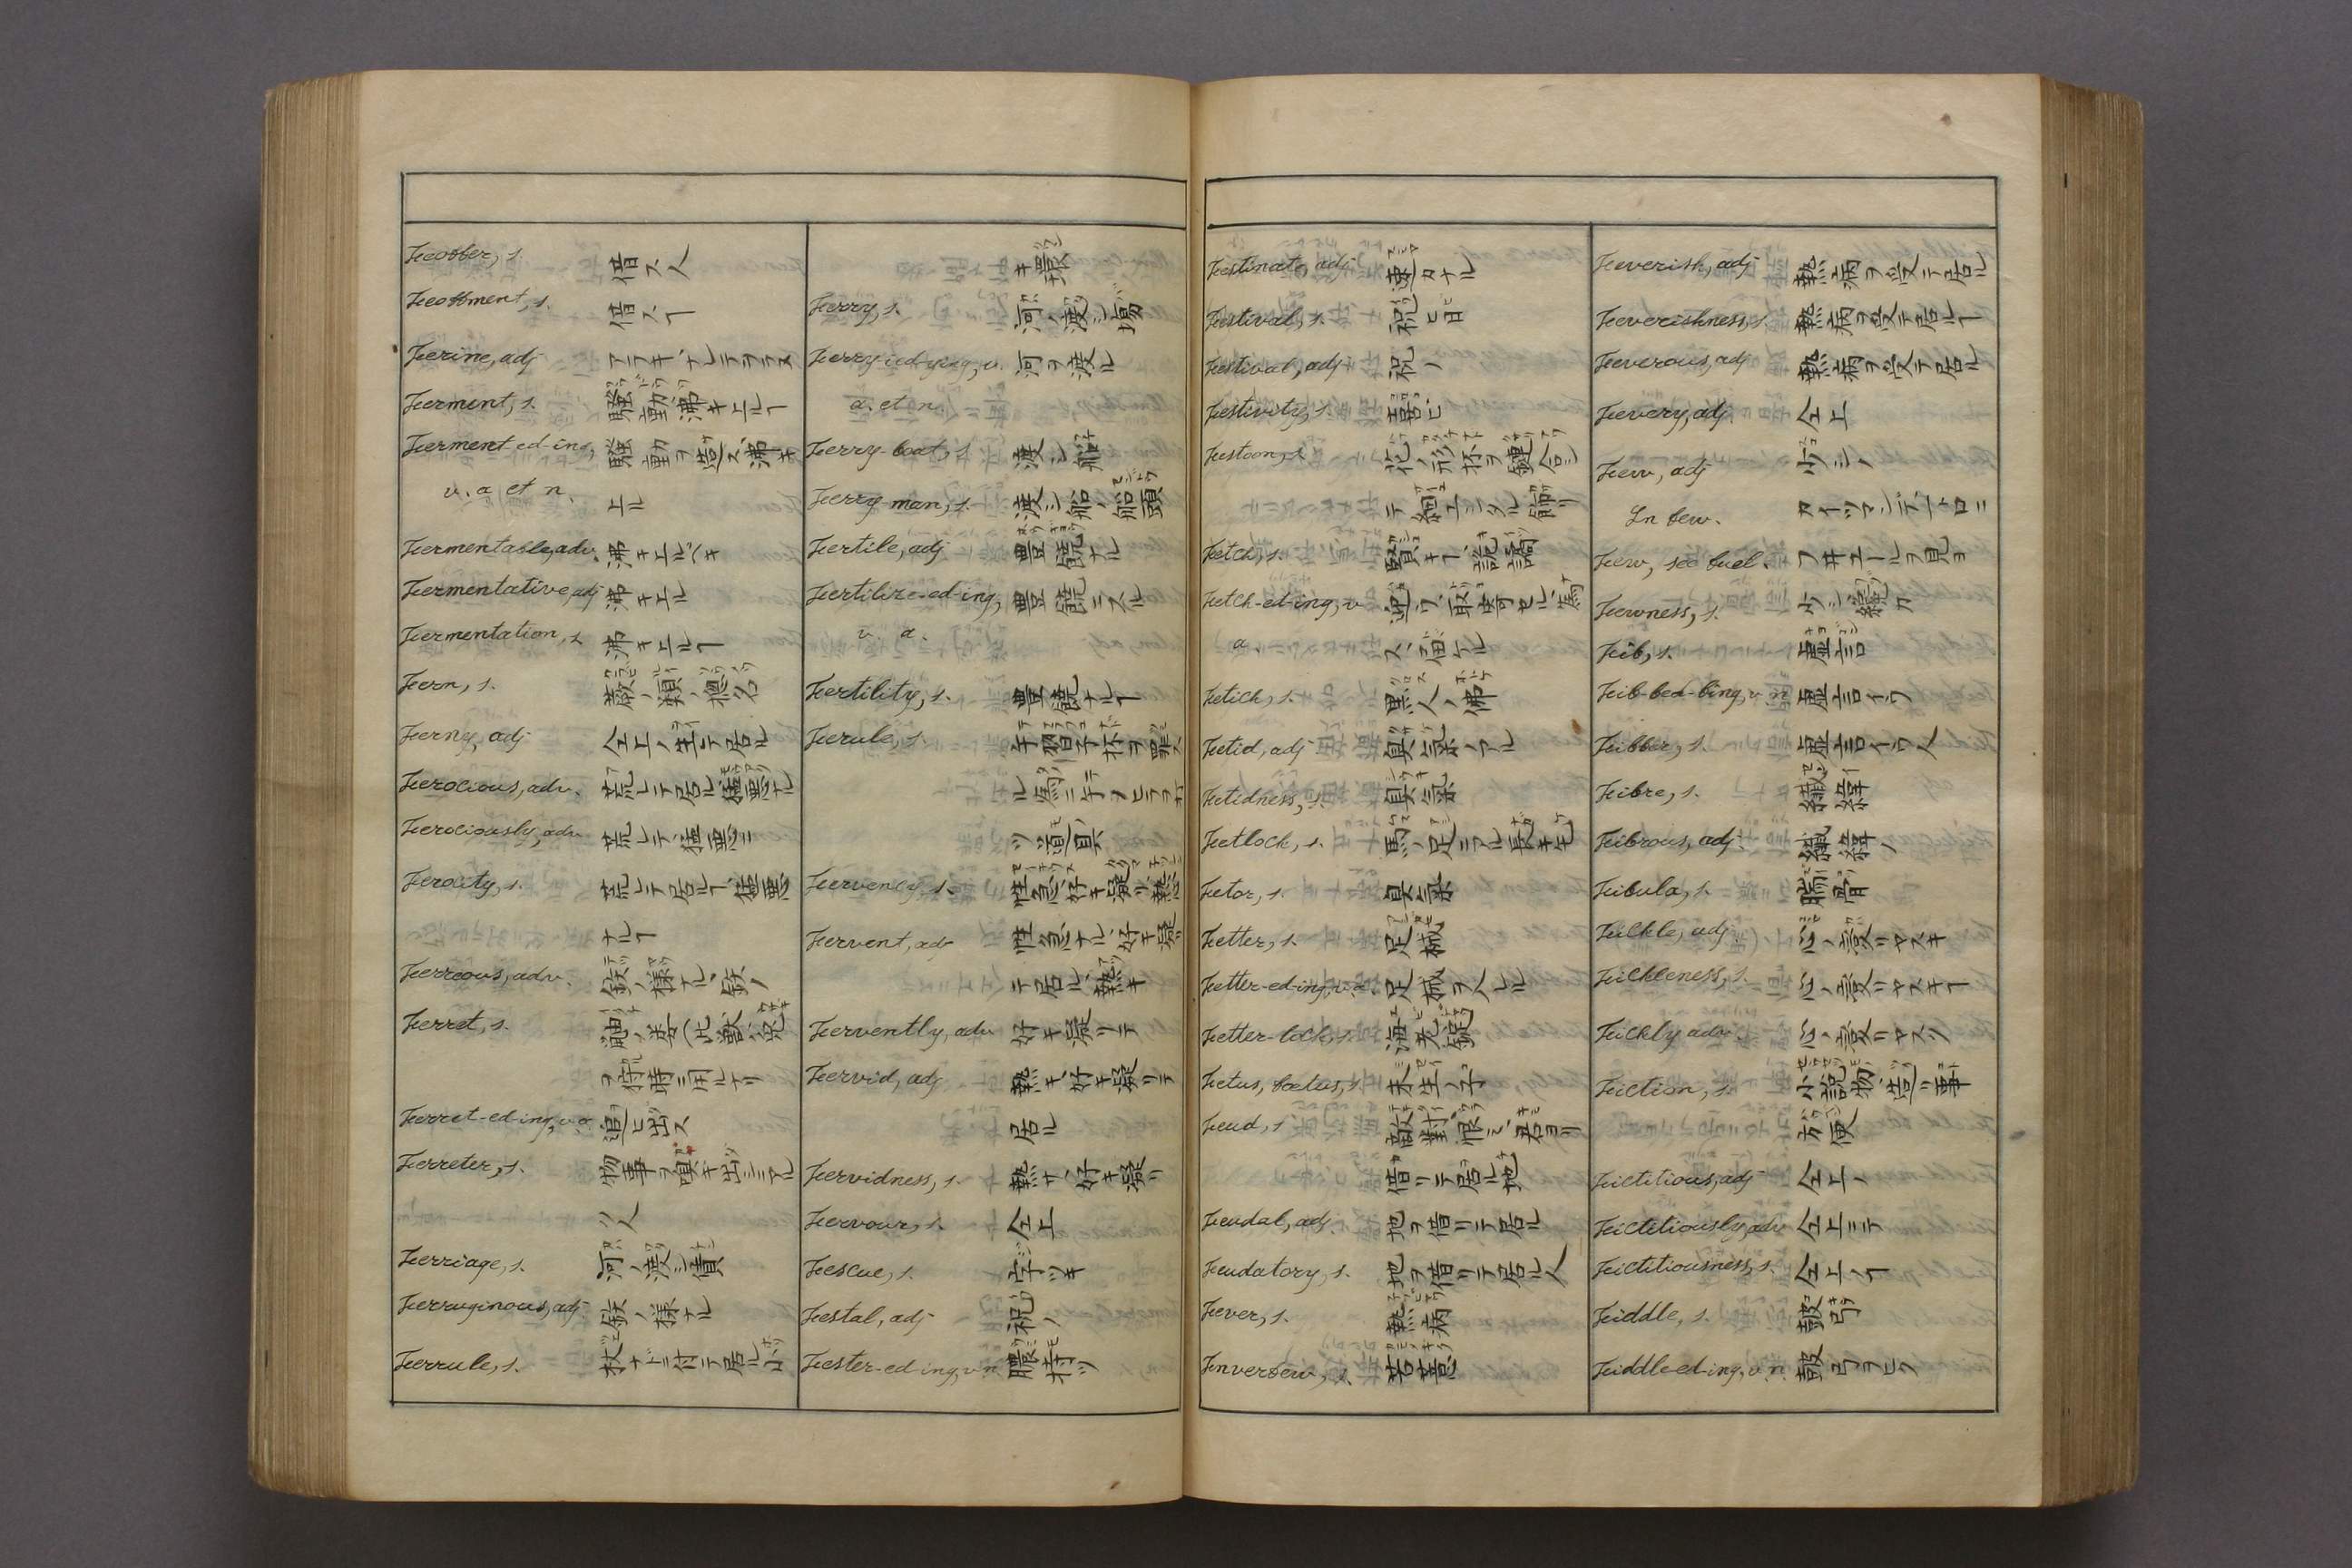 Feoffer, s. 借ス人
Feoffment, s. 借スヿ
Ferine, adj アラキ、アレテヲラヌ
Ferment, s. 騒動、沸キエルヿ
Ferment-ed-ing, 騒動ヲ造ス、沸キ
v. a et n. エル
Fermentable, adv. 沸キエルベキ
Fermentative, adj 沸キエル
Fermentation, s 沸キエルヿ
Fern, s. 薇ノ類ノ惣名
Ferny, adj 仝上ノ生テ居ル
Ferocious, adv. 荒レテ居ル、猛悪ナル
Ferociously, adv 荒レテ、猛悪ニ
Ferocity, s. 荒レテ居ルヿ、猛悪
ナルヿ
Ferreous, adv. 鉄ノ様ナル、鉄ノ
Ferret, s. 鼬ノ
ヲ狩時ニ用ルナリ
Ferret-ed-ing, v. a 追ヒ出ス
Ferreter, s. 物事ヲ
人
Ferriage, s. 河ノ渡シ債
Ferruginous, adj 鉄ノ様ナル
Ferrule, s. 杖ナドニ付テ居ル
キ環
Ferry, s. 河ノ渡シ場
Ferry-ied-ying, v. 河ヲ渡ル
a. et n.
Ferry-boat, s 渡シ船
Ferry-man, s. 渡シ船ノ船頭
Fertile, adj 豊饒ナル
Fertilize-ed-ing, 豊饒ニスル
v. a.
Fertility, s. 豊饒ナルヿ
Ferule, s. 手習子抔ヲ罪ス
ル為ニ手ノヒラヲ打
ツ道具
Fervency, s. 性急、好キ凝リ、熱
Fervent, adv 性急ナル、好キ凝
テ居ル、熱キ
Fervently, adv 好キ凝リテ
Fervid, adj 熱キ、好キ凝リテ
居ル
Fervidness, s. 熱サ、好キ凝リ
Fervour, s. 仝上
Fescue, s. 字ツキ
Festal, adj 祝ノ
Fester-ed-ing, v. n. 膿持ツ
Festinate, adj 速カナル
Festival, s. 祝ヒ日
Festival, adj 祝ノ
Festivity, s. 喜ビ
Festoon, s. 花ノ形抔ヲ鏈合シ
テ エシタル飾リ
Fetch, s. 賢キヿ、詭譎
Fetch-ed-ing, v 迎ウ、取寄セル、為
a. ス、届ケル
Fetich, s. 黒人ノ佛
Fetid, adj 臭気ノアル
Fetidness, s. 臭気
Fetlock, s. 馬ノ足ニアル長キ毛
Fetor, s. 臭気
Fetter, s. 足械
Fetter-ed-ing, v. a. 足械ヲ入レル
Fetter-lock, s. 海老錠
Fetus, fœtus, s. 未生ノ子
Feud, s 敵対、恨ミ、君ヨリ
借リテ居ル地
Feudal, adj 地ヲ借リテ居ル
Feudatory, s. 地ヲ借リテ居ル人
Fever, s. 熱病
Fnversew, s. 若薏
Feverish, adj 熱病ヲ受テ居ル
Feverishness, s. 熱病ヲ受テ居ルヿ
Feverous, adj 熱病ヲ受テ居ル
Fevery, adj. 仝上
Few, adj 少シノ
In few. カイツマンデ、一ト口ニ
Few, see fuel. フ井エールヲ見ヨ
Fewness, s. 少シ、纔カ
Fib, s. 虚言
Fib-bed-bing, v. n. 虚言イウ
Fibber, s. 虚言イウ人
Fibre, s. 繊緯
Fibrous, adj. 繊緯ノ
Fibula, s. 腨骨
Fickle, adj 心ノ変リヤスキ
Fickleness, s. 心ノ変リヤスキヿ
Fickly adv. 心ノ変リヤスク
Fiction, s. 小説物、造リ事
方便
Fictitious, adj 仝上ノ
Fictitiously, adv 仝上ニテ
Fictitiousness, s. 仝上ノヿ
Fiddle, s. 皷弓
Fiddle-ed-ing, v. n. 皷弓ヲヒク